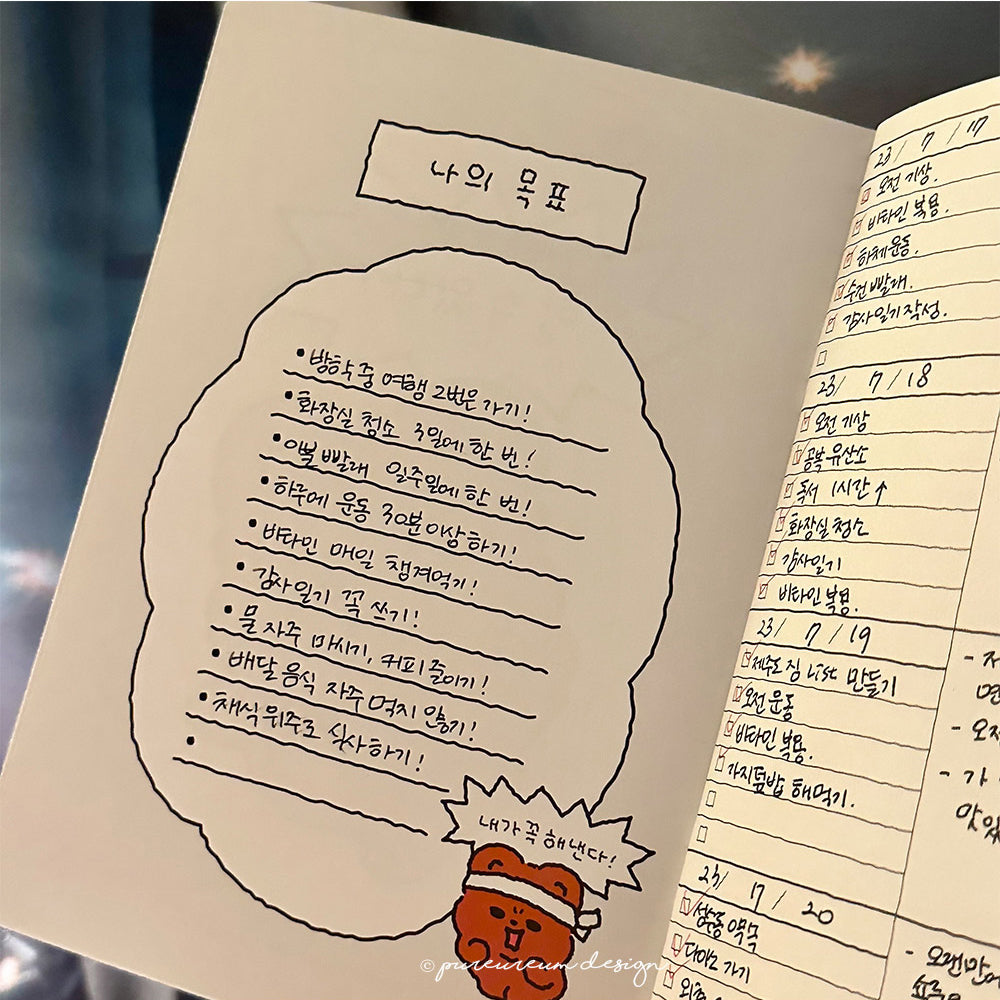 나의 목표
• 방학 중 여행 2번은 가기!
• 화장실 청소 3일에 한 번!
• 이불 빨래 일주일에 한 번!
• 하루에 운동 30분 이상 하기!
• 비타민 매일 챙겨먹기!
• 감사 일기 꼭 쓰기!
• 물 자주 마시기, 커피 줄이기!
• 배달 음식 자주 먹지 않기!
• 채식 위주로 식사하기!
•
내가 꼭 해낸다!
© pureureum design
23/ 7 / 17
오전 기상.
비타민 복용.
하체운동.
수건 빨래.
감사일기 작성.
23/ 7 / 18
오전 기상
공복 유산소
독서 1시간↑
화장실 청소
감사일기
비타민 복용.
23/ 7 / 19
제주도 짐 list 만들기
오전 운동
비타민 복용.
가지덮밥 해먹기.
23/ 7 / 20
성수동 약속
다이소 가기
- 오랜만에